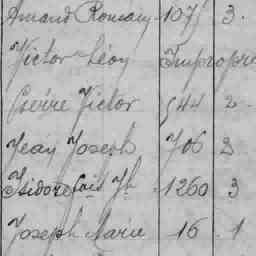 Amand Romain 107 3.
Victor Léon Impropre
Pierre Victor 544 2
Jean Joseph 706 2
Isidore Jh 1260 3
Joseph Marie 16 1